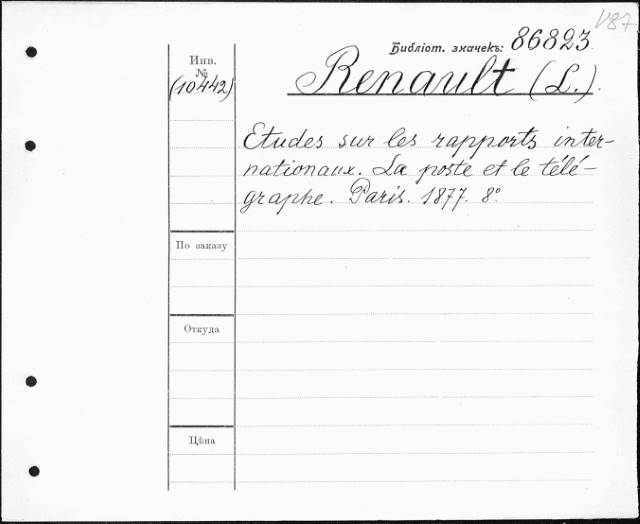 V87
Библіот. значекъ: 86823
Инв.
№
(10442)
Renault (L.).
Etudes sur les rapports inter-
nationaux. La poste et le télé-
graphe. Paris. 1877. 8°.
По заказу
Откуда
Цѣна